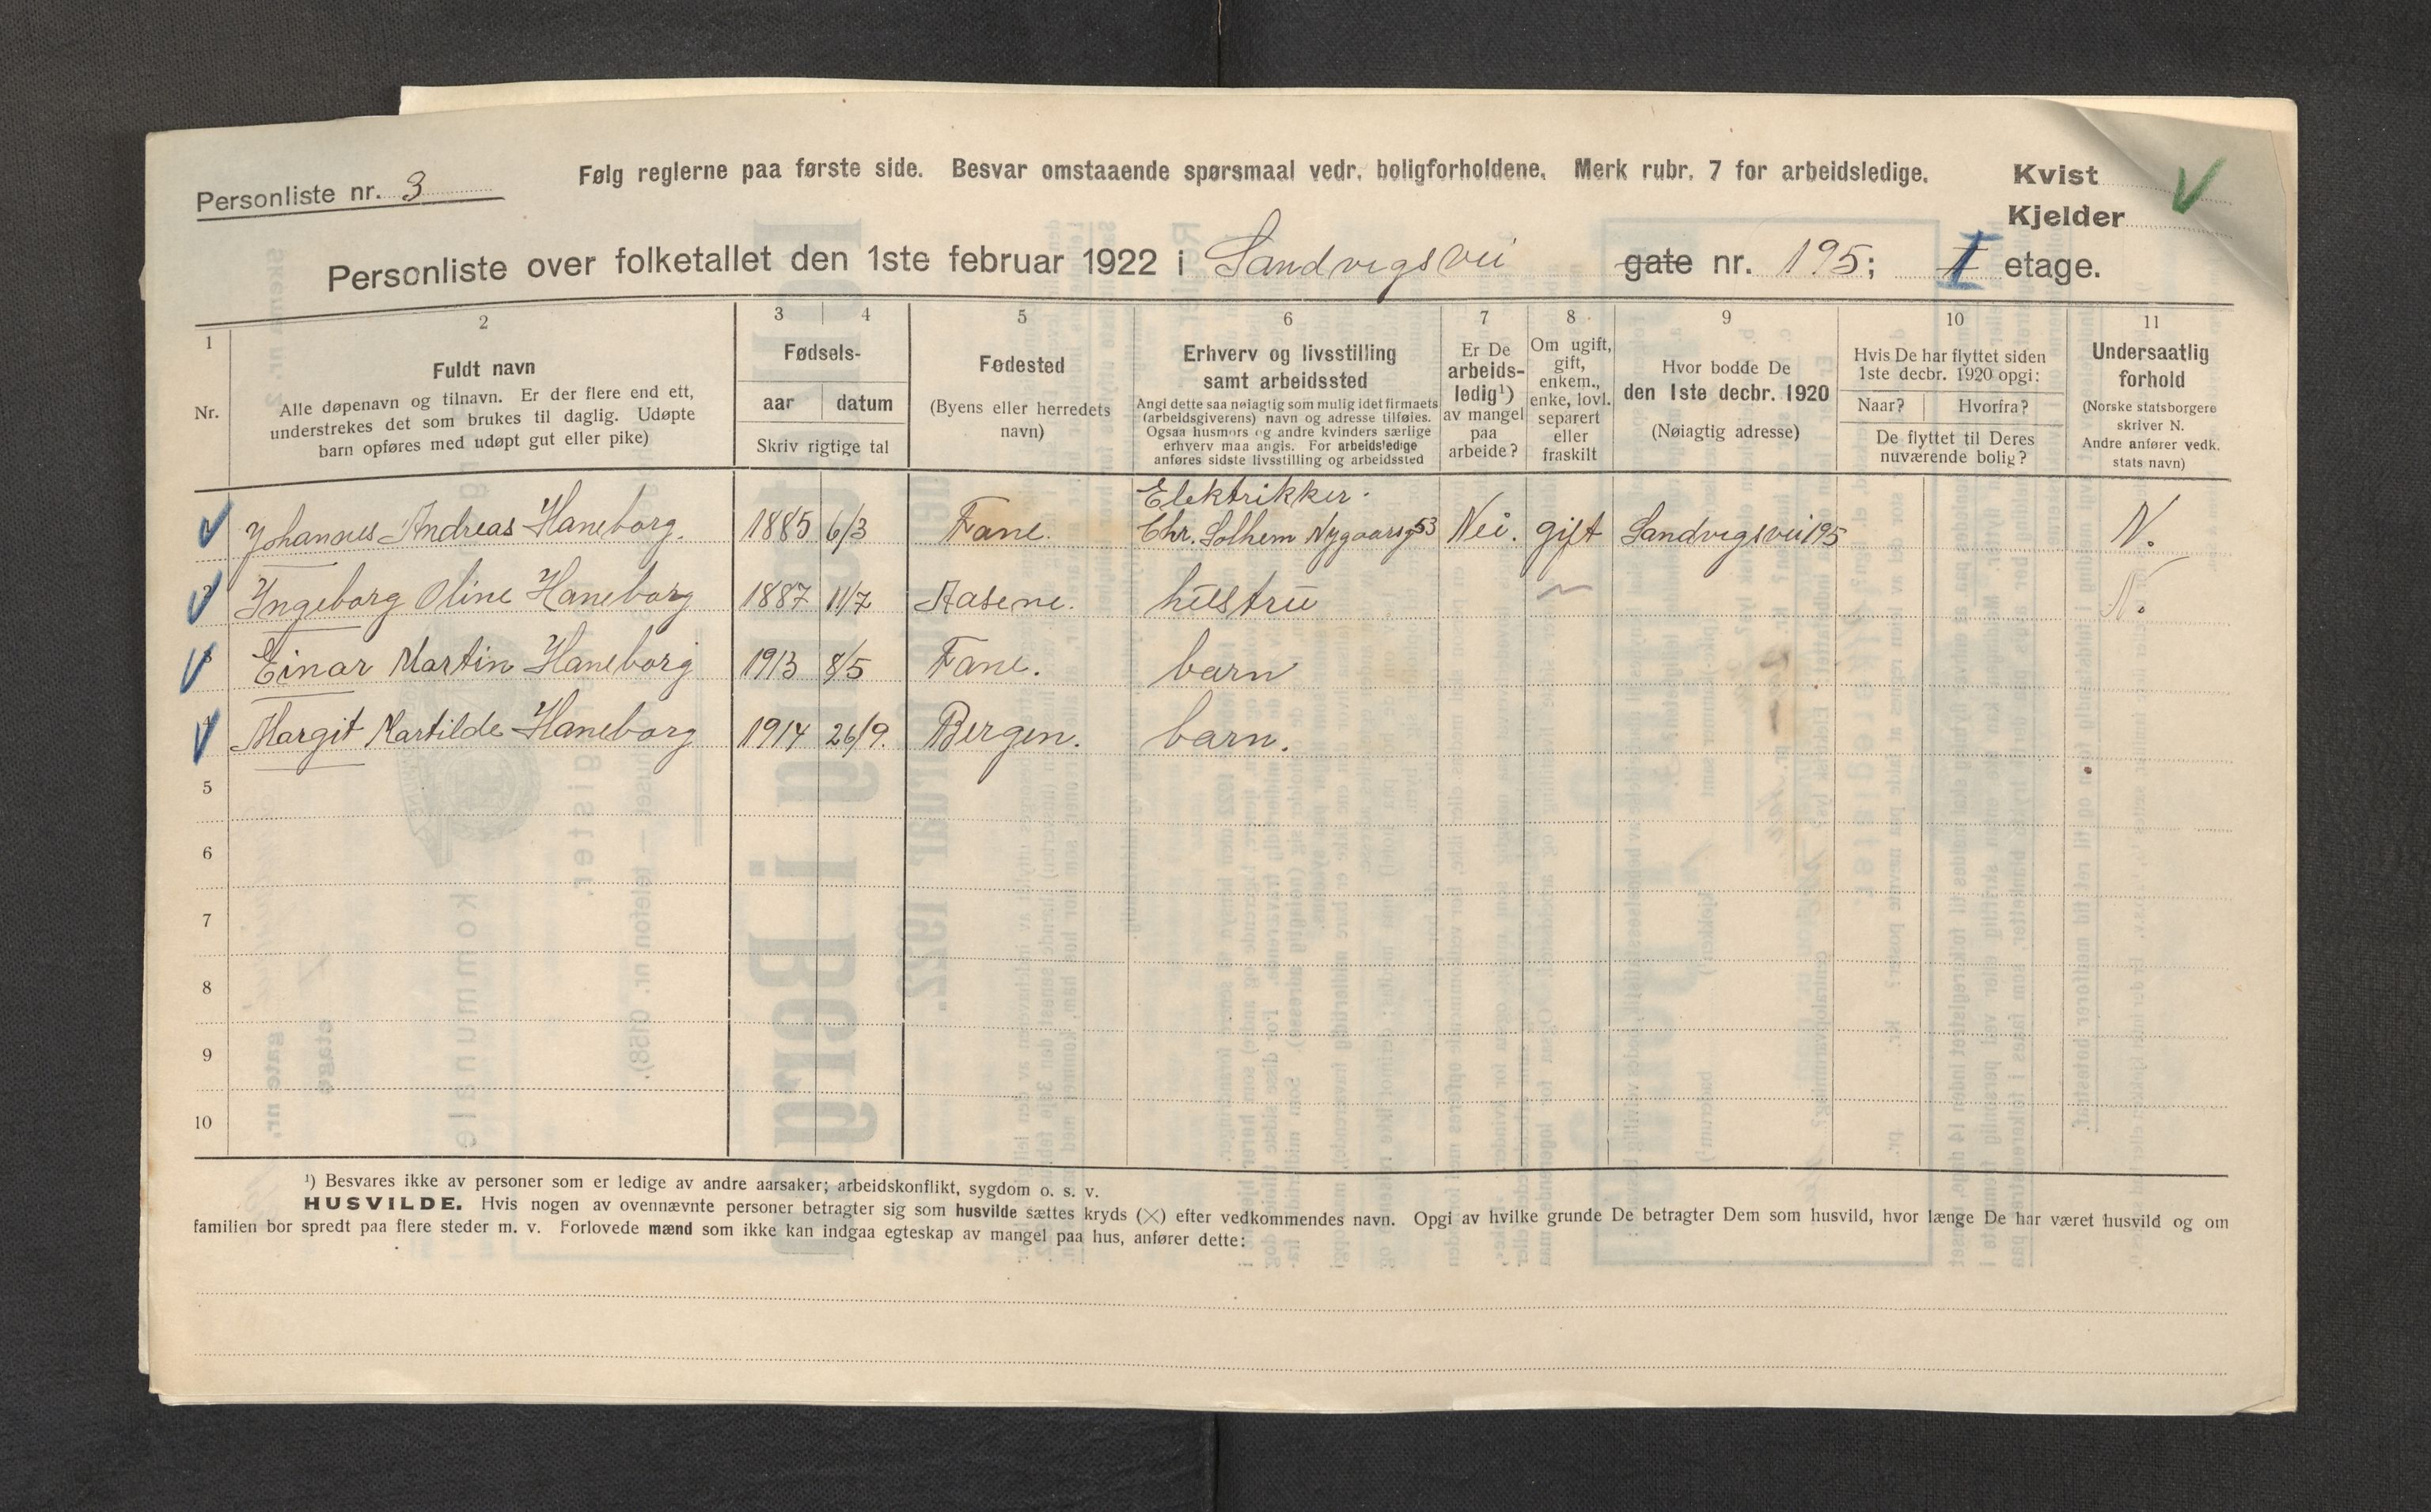 Personliste nr. 3
Følg reglerne paa første side. Besvar omstaaende spørsmaal vedr. boligforholdene. Merk rubr. 7 for arbeidsledige.
Kvist
Kjelder
Personliste over folketallet den 1ste februar 1922 i Sandvigsvei gate nr. 195; I etage.
1
Nr.
2
Fuldt navn
Alle døpenavn og tilnavn. Er der flere end ett,
understrekes det som brukes til daglig. Udøpte
barn opføres med udøpt gut eller pike)
3 4
Fødsels-
aar datum
Skriv rigtige tal
5
Fødested
(Byens eller herredets
navn)
6
Erhverv og livsstilling
samt arbeidssted
Angi dette saa nøiagtig som mulig idet firmaets
(arbeidsgiverens) navn og adresse tilføies.
Ogsaa husmors og andre kvinders særlige
erhverv maa angis. For arbeidsledige
anføres sidste livsstilling og arbeidssted
7
Er De
arbeids-
ledig¹)
av mangel
paa
arbeide?
8
Om ugift,
gift,
enkem.,
enke, lovl.
separert
eller
fraskilt
9
Hvor bodde De
den 1ste decbr. 1920
(Nøiagtig adresse)
10
Hvis De har flyttet siden
1ste decbr. 1920 opgi:
Naar? Hvorfra?
De flyttet til Deres
nuværende bolig?
11
Undersaatlig
forhold
(Norske statsborgere
skriver N.
Andre anfører vedk.
stats navn)
Elektrikker.
Johannes Andreas Haneborg. 1885 6/3 Fane. Chr. Solhem Nygaarsg 53 Nei. gift Sandvigsvei 195 N.
Ingeborg Oline Haneborg 1887 11/7 Aasene. hustru N.
Einar Martin Haneborg 1913 8/5 Fane. barn
Margit Martilde Haneborg 1914 26/9. Bergen. barn.
5
6
7
8
9
10
¹) Besvares ikke av personer som er ledige av andre aarsaker; arbeidskonflikt, sygdom o. s. v.
HUSVILDE. Hvis nogen av ovennævnte personer betragter sig som husvilde sættes kryds (×) efter vedkommendes navn. Opgi av hvilke grunde De betragter Dem som husvild, hvor længe De har været husvild og om
familien bor spredt paa flere steder m. v. Forlovede mænd som ikke kan indgaa egteskap av mangel paa hus, anfører dette: